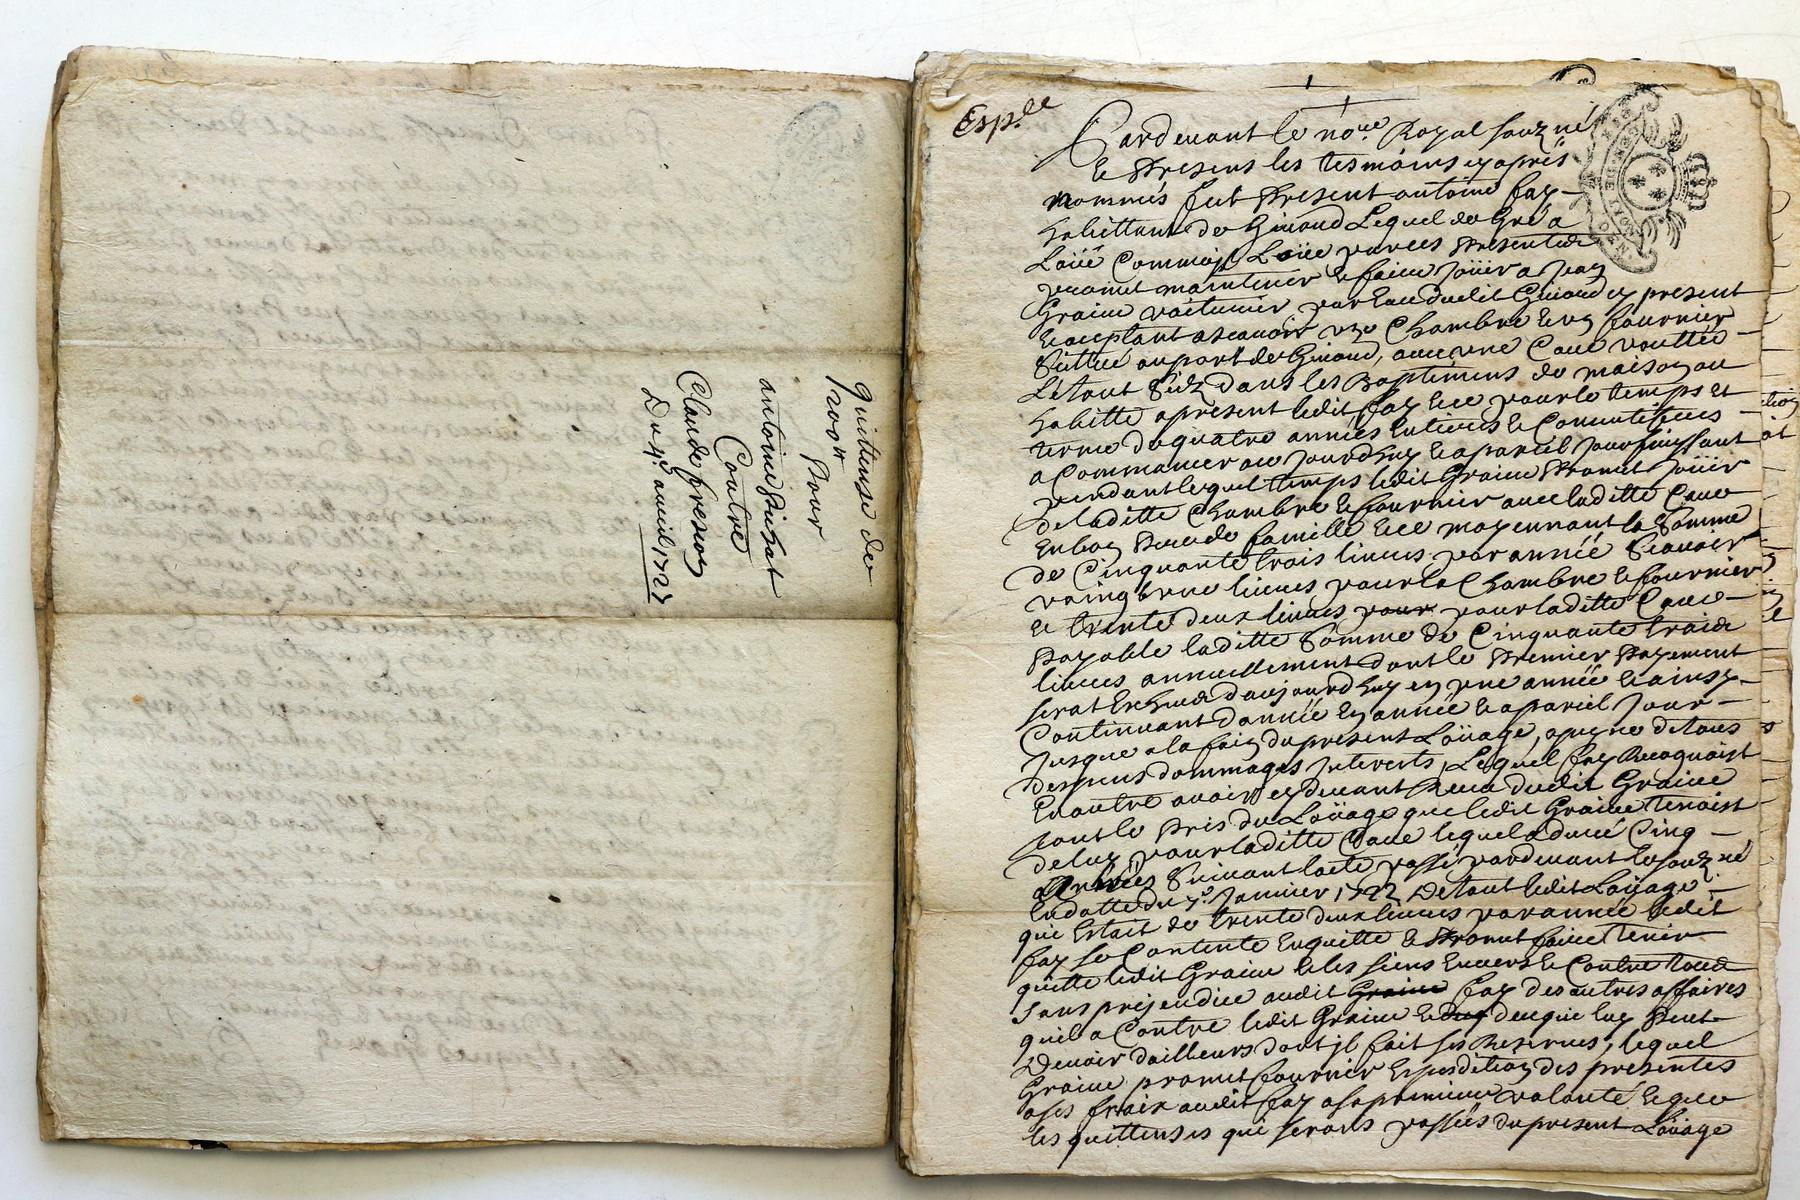 quittense de
1200tt Pour
antoine Duzat
Contre
Claude fression
Du 4e. auril 1727
Esp.le
Pardeuant le no.re Royal souz.né
& Presens les tesmoins cy apres
nommés fut Present antoine fay
habittant de Giuord Lequel de Gré a
Loüé Comme il Loüe par ces Presentes
promet maintenir & faire joüir a Jean
Graine voiturier par Eau dudit Giuord cy present
& acceptant ascauoir vne Chambre & vn fournier
Sittué au port de Giuord, auec vne Caue vouttée
Le tout Sis dans les Baptimens de maison ou
habitte apresent ledit fay & ce pour le temps et
terme de quatre années Entieres & Consecutiues
a Commancer ce jourdhuy & a pareil jour finissant
pendant lequel temps ledit Graine Promet joüir
de laditte Chambre & fournier auec laditte Caue
En bon Pere de famille & ce moyennant la Somme
de Cinquante trois liures par année Scauoir
vaingt vne liures pour la Chambre & fournier
& trente deux liures pour laditte Caue
Payable laditte Somme de Cinquante trois
liures annuellement dont le Premier Payement
serat Escheu daujourdhuy en vne année & ainsy
Continuant dannée En année & a pareil Jour
Jusque a la fain du present Loüage, a peyne de tous
despens dommages Interests, Lequel fay Recognoist
En outre auoir cy deuant Receu dudit Graine
tout le Pris du Loüage que ledit Graine tenoist
de luy pour laditte Caue lequel a duré Cinq
années Suiuant lacte passé pardeuant le souz.né
En datte du 7e. Januier 1722 De tout ledit Loüage
qui Estait de trente deux liures par année ledit
fay se Contente En quitte & Promet faire tenir
quitte ledit Graine & les siens Enuers & Contre tous
sans prejeudice audit fay des autres affaires
quil a Contre ledit Graine & de ce que luy Peut
Deuoir dailleurs dont jl fait ses Reserues, lequel
Graine promet fournir Expedition des presentes
a ses fraix audit fay a sa premiere volonté & que
les quittenses qui serons passées du present Loüage